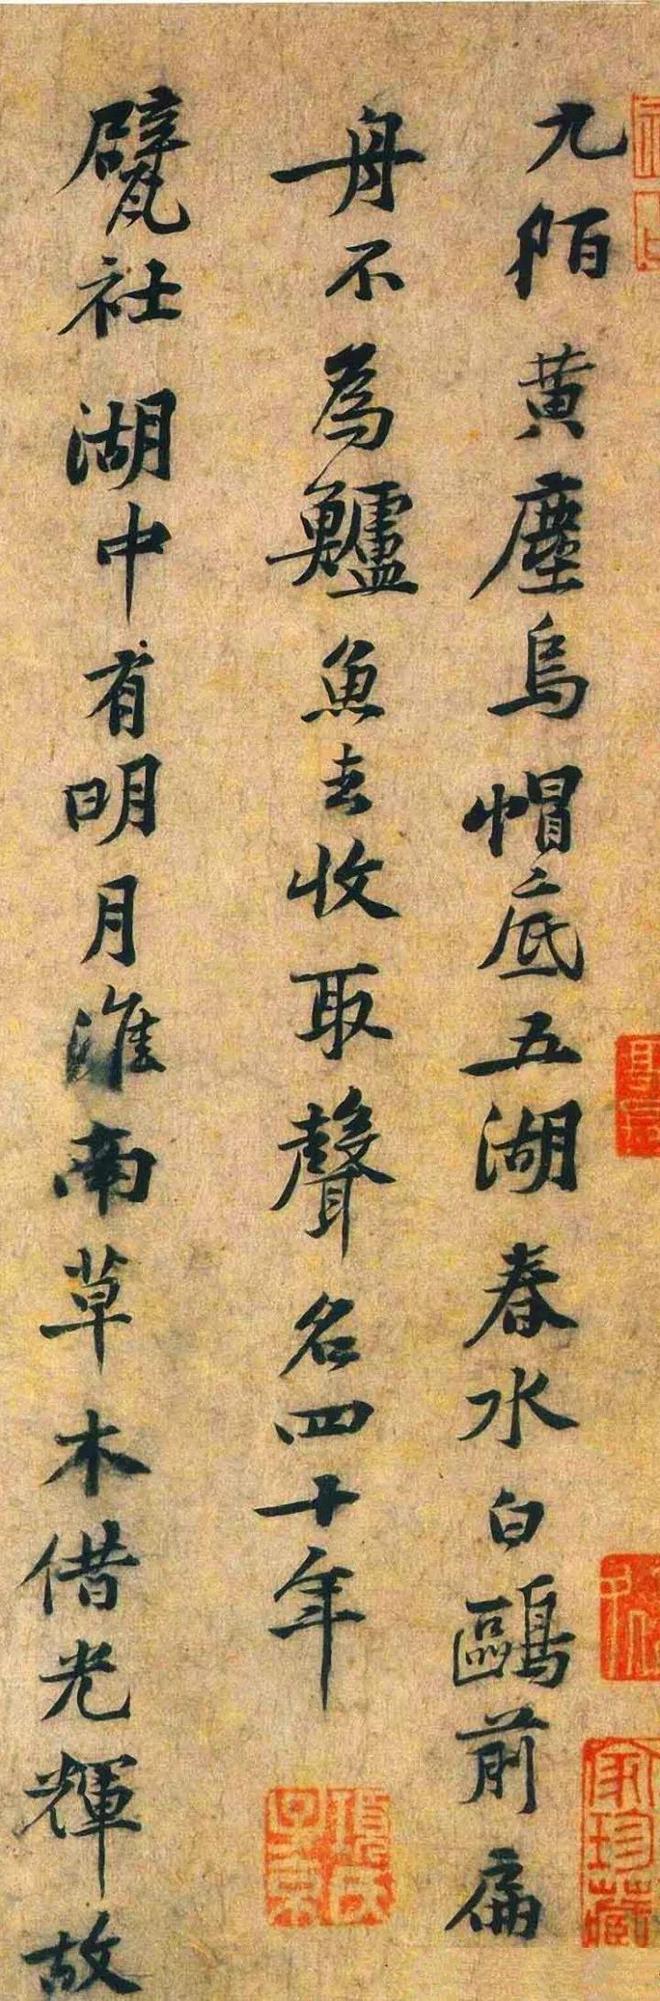 九陌黄塵烏帽底五湖春水白鷗前扁
舟不為鱸魚去收取聲名四十年
甓社湖中有明月淮南草木借光輝故
項氏子京
家珍藏